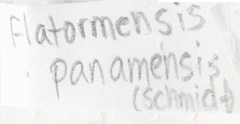 Flatormensis
panamensis
(schmidt)